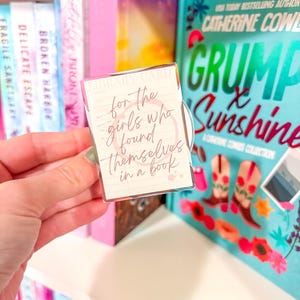 FRAGILE SANCTUARY
DELICATE ESCAPE
BROKEN HARBOR
for the
girls who
found
themselves
in a book
USA TODAY BESTSELLING AUTHOR
CATHERINE COW
GRUMP
x
Sunshine
A CATHERINE COWLES COLLECTION